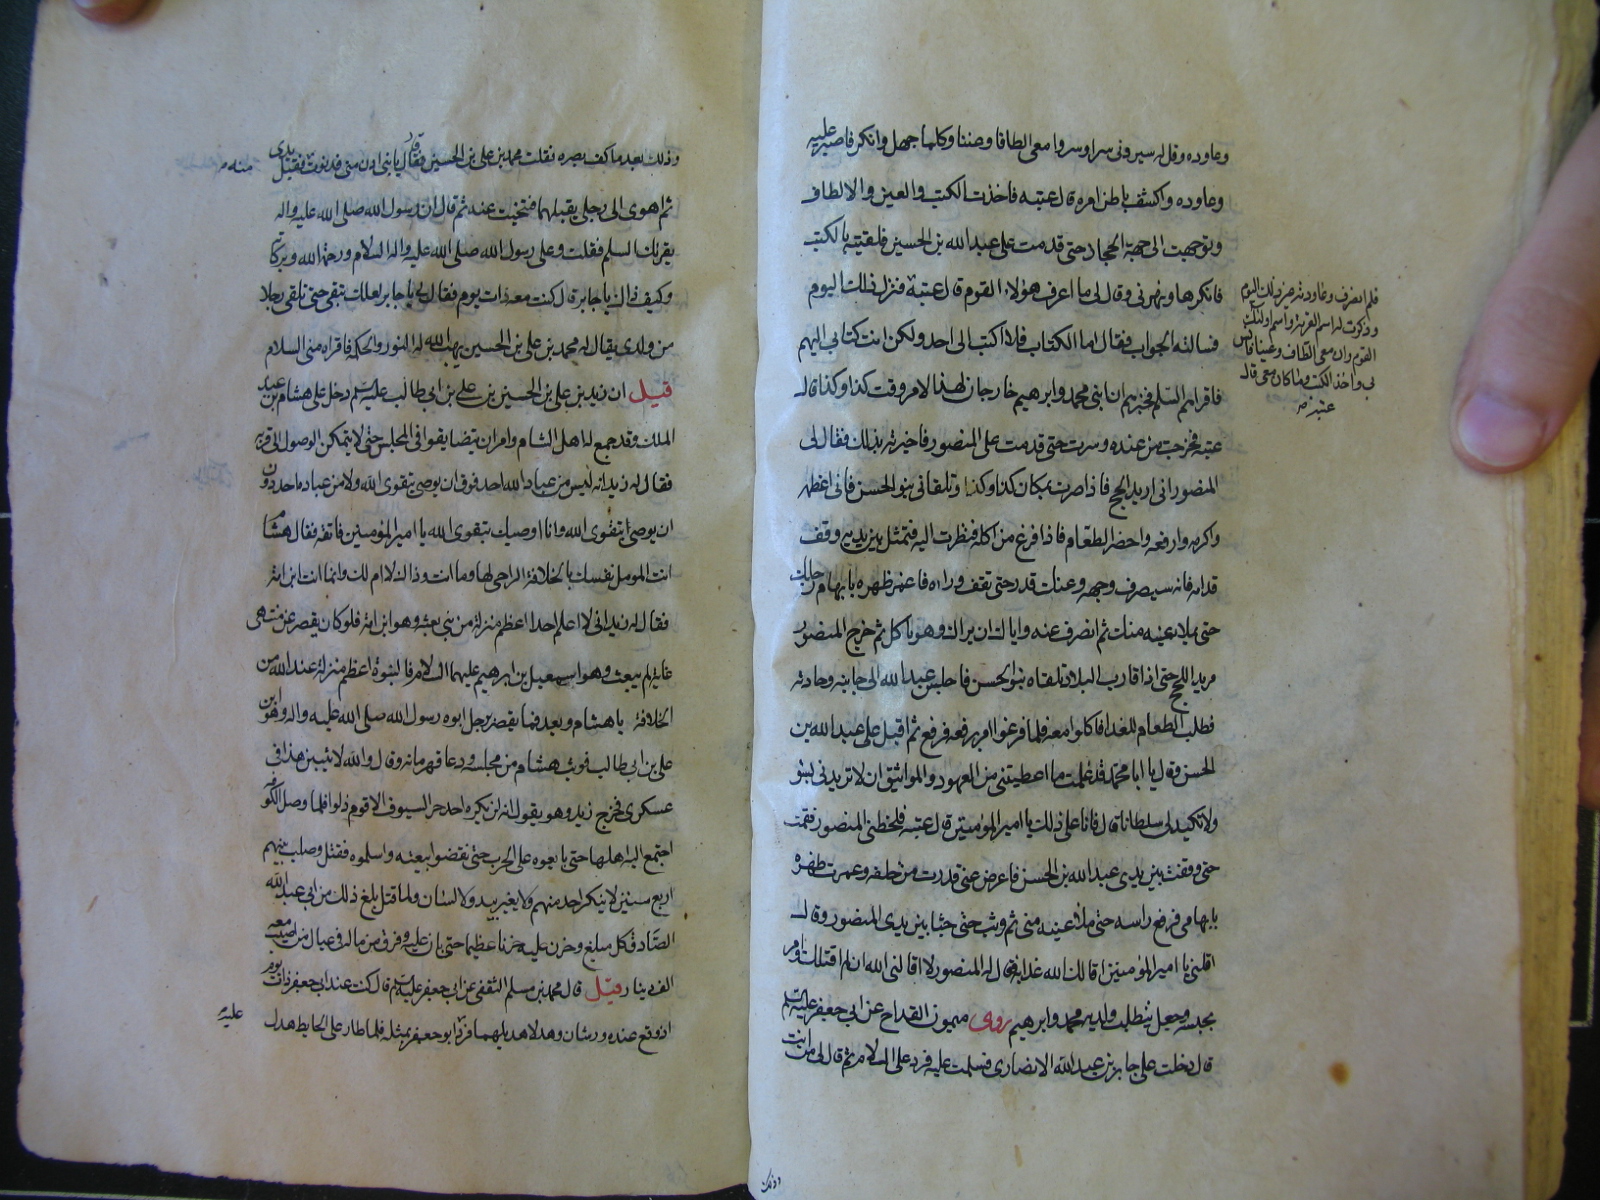 وعاوده وقل له سيروني سرا وسروا معي الطافا وصننا وكلما جهل وانكر فاصبر عليه
وعاوده واكشف باطن امره قال عتبه فاخذت الكتب والعين والالطاف
وتوجهت الى جهة الحجاز حتى قدمت على عبد الله بن الحسين فلقيته بالكتب
فانكرها ونهرني وقال لي ما اعرف هؤلاء القوم قال عتبة فنزل ذلك اليوم
فلم انصرف وعاودته من ذلك اليوم
وذكرت له اسم القرية واسم اولئك
القوم وان معي الطاف وعينا فانس
بي واخذ الكتب وما كان معي قال
عتبه
فسالته الجواب فقال اما الكتاب فلا اكتب الى احد ولكن انت كتابي اليهم
فاقراهم السلم فخبرهم ان ابني محمد وابرهيم خارجان لهذا الامر وقت كذا وكذا قال
عتبه فخرجت من عنده وسرت حتى قدمت على المنصور فاخبرته بذلك فقال لي
المنصور اني اريد الحج فاذا صرت بمكان كذا وكذا وتلقاني بنو الحسن فاني اعظمه
واكرمه وارفعه واحضر الطعام فاذا فرغ من اكله فنظرت اليه فتمثل بين يديه وقف
قدامه فانه سيصرف وجهه وعنك قدر حتى تقف وراه فاغمز ظهره بابهام رجلك
حتى يملا عينيه منك ثم انصرف عنه واياك ان يراك وهو ياكل ثم خرج المنصور
مريدا للحج حتى اذا قارب البلاد تلقاه بنو الحسن فاجلس عبد الله الى جانبه وحادثه
فطلب الطعام للغدا فاكلوا معه فلما فرغوا امر برفعه فرفع ثم اقبل على عبد الله بن
الحسن وقال يا ابا محمد قد علمت ما اعطيتني من العهود والمواثيق ان لا تريدني بسوء
ولا تكيد لي سلطانا قال فانا على ذلك يا امير المومنين قال عتبه فلحظني المنصور فقمت
حتى وقفت بين يدي عبد الله بن الحسن فاعرض عني فدرت من خلفه وغمزت ظهره
بابهامي فرفع راسه حتى ملا عينيه مني ثم وثب حتى جثا بين يدي المنصور وقال
اقلني يا امير المومنين اقالك الله غدا فقال له المنصور لا اقالني الله ان لم اقتلك وامر
بحبسه وجعل يتطلب ولديه محمد وابرهيم روى ميمون القداح عن ابي جعفر عليه السلم
قال دخلت على جابر بن عبد الله الانصاري فسلمت عليه فرد علي السلام ثم قال لي من انت
وذلك
وذلك بعد ما كف بصره فقلت محمد بن علي بن الحسين فقال يا بني ادن مني فدنوت فقبل يدي
ثم اهوى الى رجلي يقبلهما فتنحيت عنه ثم قال ان رسول الله صلى الله عليه واله
يقرئك السلم فقلت وعلى رسول الله صلى الله عليه واله السلام ورحمة الله وبركاته
وكيف ذاك يا جابر قال كنت معه ذات يوم فقال لي يا جابر لعلك تبقى حتى تلقى رجلا
من ولدي يقال له محمد بن علي بن الحسين يهب الله له النور والحكم فاقراه مني السلام
قيل ان زيد بن علي بن الحسين بن علي بن ابي طالب عليه السلم دخل على هشام بن عبد
الملك وقد جمع له اهل الشام وامر ان يتضايقوا في المجلس حتى لا يتمكن الوصول الى قربه
فقال له زيد انه ليس من عباد الله احد فوق ان يوصى بتقوى الله ولا من عباده احد دون
ان يوصى بتقوى الله وانا اوصيك بتقوى الله يا امير المؤمنين فاتقه فقال هشام
انت المومل نفسك بالخلافة الراجي لها وما انت وذاك لا ام لك وانما انت ابن امة
فقال له زيد اني لا اعلم احدا اعظم منزلة من نبي بعثه وهو ابن امة فلو كان يقصر عن منتهى
غاية لم يبعث وهو اسمعيل بن ابرهيم عليهما السلام فالنبوة اعظم منزلة عند الله من
الخلافة يا هشام وبعد فما يقصر برجل ابوه رسول الله صلى الله عليه واله وهو ابن
علي بن ابي طالب فوثب هشام من مجلسه ودعا قهرمانه وقال والله لا يبيتن هذا في
عسكري فخرج زيد وهو يقول انه لن يكره احد حر السيوف الا قوم ذلوا فلما وصل الكوفة
اجتمع اليه اهلها حتى بايعوه على الحرب حتى نقضوا بيعته واسلموه فقتل وصلب بينهم
اربع سنين لا ينكر احد منهم ولا يغير بيد ولا لسان ولما قتل بلغ ذلك من ابي عبد الله
الصادق كل مبلغ وحزن عليه حزنا عظيما حتى بان عليه وفرق من ماله في عيال من اصيب معه
الف دينار قيل قال محمد بن مسلم الثقفي عن ابي جعفر عليه السلم قال كنت عند ابي جعفر ذات يوم
اذ وقع عنده ورشان وهدلا هديلهما فرد ابو جعفر بمثله فلما طار على الحايط هدل